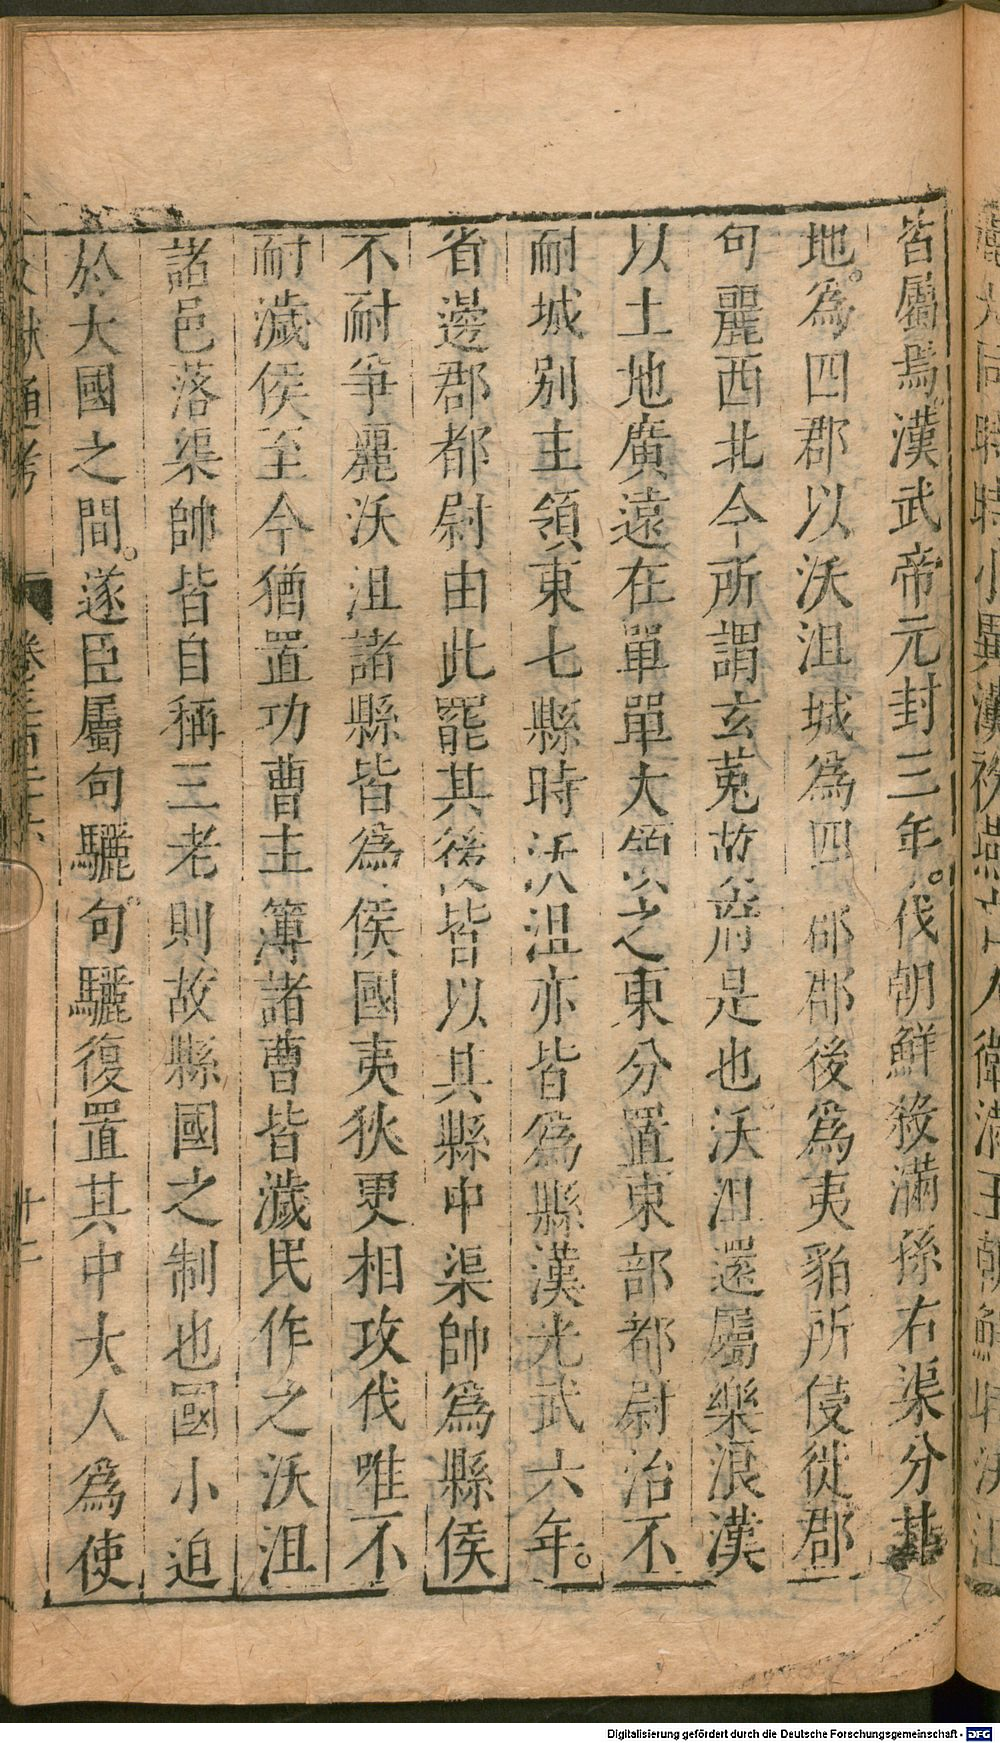 皆屬焉漢武帝元封三年。伐朝鮮殺滿孫右渠分其
地。為四郡以沃沮城為四郡郡後為夷貊所侵從郡
句麗西北今所謂玄菟故府是也沃沮還屬樂浪漢
以土地廣遠在單單大領之東分置東部都尉治不
耐城別主領東七縣時沃沮亦皆為縣漢光武六年。
省邊郡都尉由此罷其後皆以其縣中渠帥為縣侯
不耐爭麗沃沮諸縣皆為侯國夷狄更相攻伐唯不
耐濊侯至今猶置功曹主簿諸曹皆濊民作之沃沮
諸邑落渠帥皆自稱三老則故縣國之制也國小迫
於大國之間。遂臣屬句驪。句驪復置其中大人為使
通考
十二
Digitalisierung gefördert durch die Deutsche Forschungsgemeinschaft - DFG